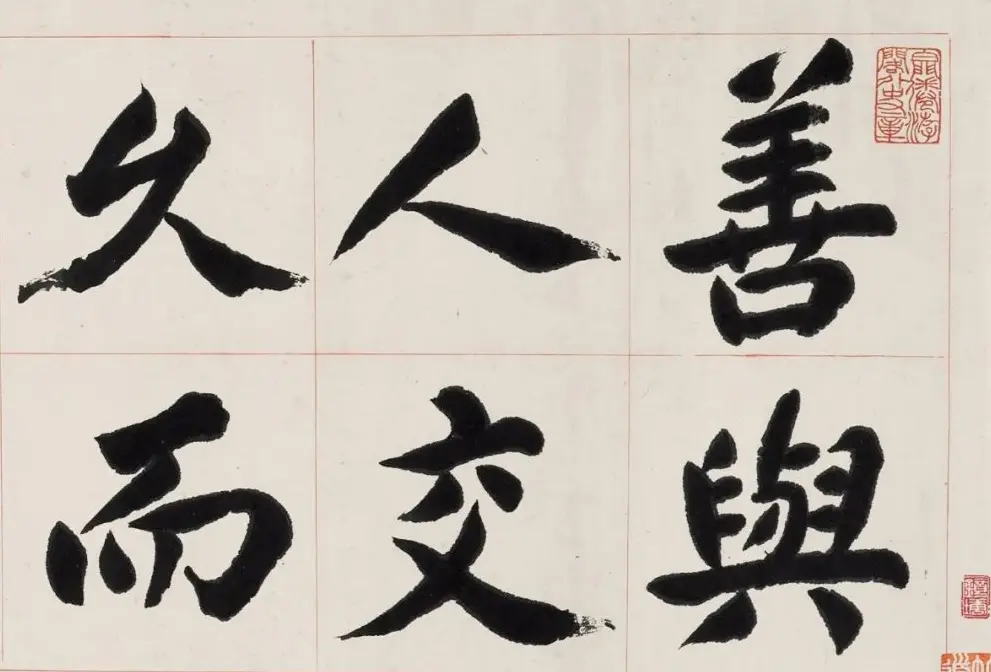 善與
人交
久而